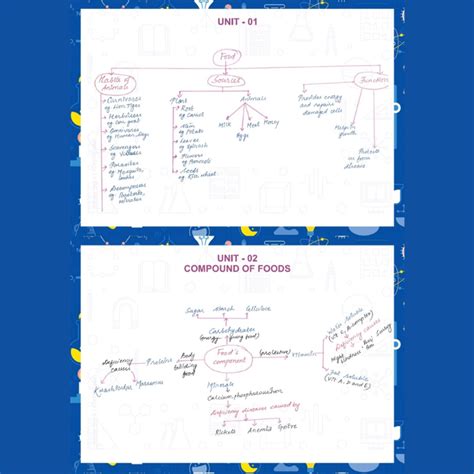 UNIT - 01
Food
Habits of
Animals
Sources
Function
Carnivores
eg Lion Tiger
Herbivores
eg Cow goat
Omnivores
eg Human, Dogs
Scavengers
eg Vultures
Parasites
eg Mosquito,
Decomposers
eg Bacteria,
Plant
Root
eg Carrot
Stem
eg Potato
Leaves
eg Spinach
Flowers
eg Broccoli
Seeds
eg Rice, wheat
Animals
Milk
Eggs
Meat
Honey
Provides energy
and repairs
damaged cells
Helps in
growth
Protects
us from
disease
UNIT - 02
COMPOUND OF FOODS
Sugar
Starch
Cellulose
Carbohydrates
(energy giving food)
Food's
component
Body
building
food
Proteins
Deficiency
causes
Kwashiorkor
Marasmus
(protective)
Vitamins
Water Soluble
Deficiency causes
Fat Soluble
(Vit A, D and E)
Minerals
Calcium, phosphorus, iron
Deficiency diseases caused by
Rickets
Anemia
Goitre